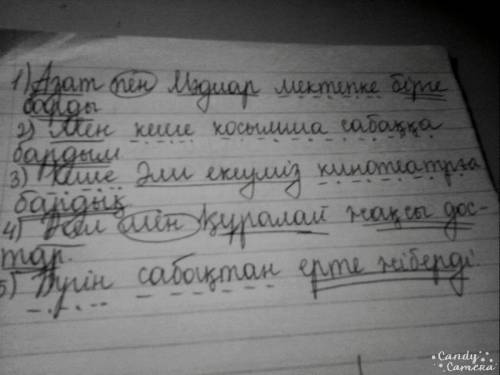 1) Азат пен Мәдиар мектепке бірге
барды
2) Мен кеше қосымша сабаққа
бардым
3) Кеше Әли екеуміз кинотеатрға
бардық
4) мен Құралай жақсы дос-
тар.
5) Бүгін сабақтан ерте жіберді.
Candy
Camera